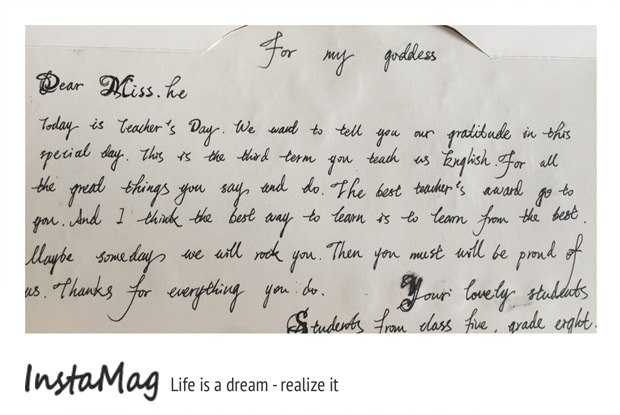 For my goddess
Dear Miss. he
Today is Teacher's Day. We want to tell you our gratitude in this
special day. This is the third term you teach us English. For all
the great things you say and do. The best teacher's award go to
you. And I think the best way to learn is to learn from the best.
Maybe someday we will rock you. Then you must will be proud of
us. Thanks for everything you do. Your lovely students
Students from class five, grade eight.
InstaMag Life is a dream - realize it